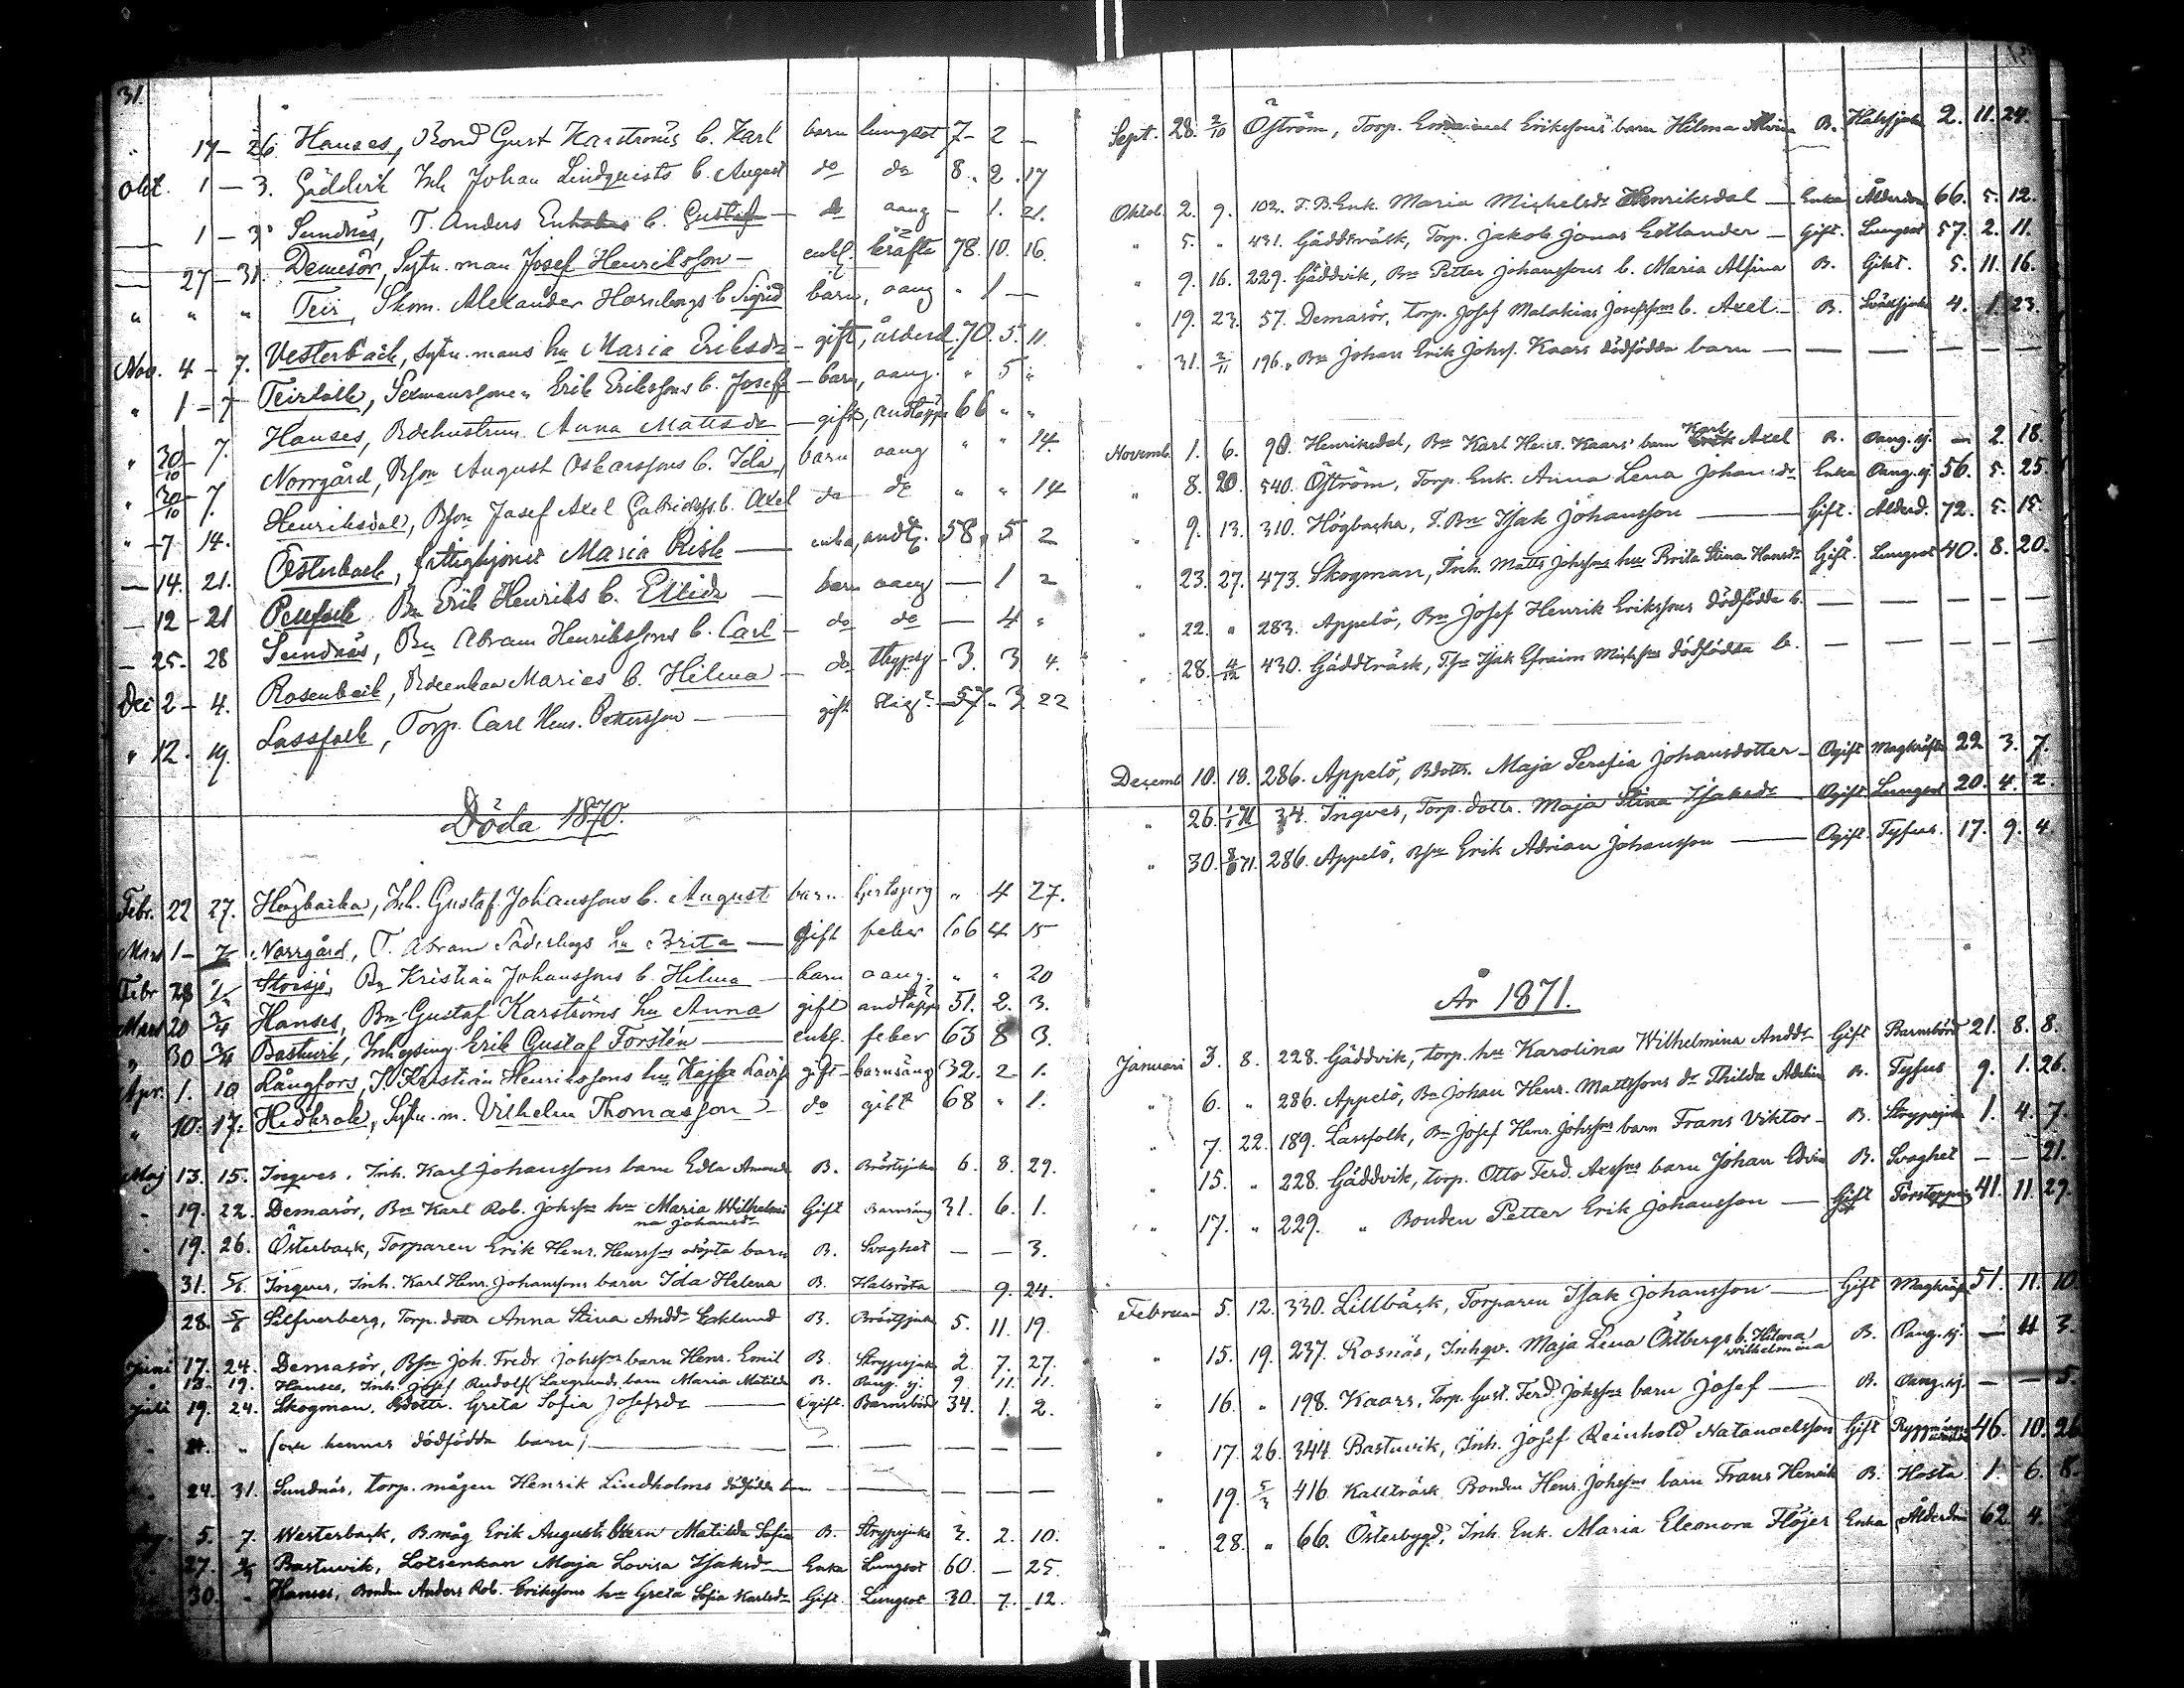 31.
" 17 – 26. Hanses, Bond Gust Karströms b. Karl barn lungsot 7 – 2 –
Okt. 1 – 3. Gäddvik Inh Johan Lindqvists b. August do do 8. 2. 17
— 1 – 3 Sundnäs, T. Anders b. Gustaf – do aang – 1. 21.
— 27 – 31. Demasör, Sytn. man Josef Henriksson – enkl. kräfta 78. 10. 16.
" " " Teir, Skom. Alexander Hornbergs b Sigrid barn, aang " 1 —
Nov. 4 – 7. Vesterback, sytn. mans hu Maria Eriksdr – gift, ålderd. 70. 5. 11
" 1 – 7 Teirfolk, Erik Erikssons b. Josef – barn, aang. " 5 "
" 30/10 – 7. Hanses, Bdehustrun Anna Mattsdr – gift, andtäppa 66 " "
" 30/10 – 7. Norrgård, Bson August Oskarssons b. Ida, barn aang " " 14
" – 7 14. Henriksdal, Bson Josef Axel Gabrielss. b. Axel do do " " 14
— 14. 21. Österback, fattighjonet Maria Risk — enka, andt. 58. 5 2
— 12 – 21 Pellfolk Bn Erik Henriks b. Ellida – barn aang — 1 2
— 25. 28 Sundnäs, Bn Abram Henrikssons b. Carl – do do — 4 "
Dec 2 – 4. Rosenback, Bdeenkan Marias b. Hilma – do Strypsj – 3. 3 4.
" 12. 19. Lassfolk, Torp. Carl Henr. Pettersson – gift Slag? – 57. 3 22
Döda 1870.
Febr. 22 27. Högbacka, Inh. Gustaf Johanssons b. August barn " 4 27.
Mars 1 – 7 Norrgård, T. Abram Söderbergs hu Brita — gift feber 66 4 15
Febr 28 Storsjö, Bn Kristian Johanssons b. Hilma — barn aang. " " 20
Mars 20 3/4 Hanses, Bn Gustaf Karströms hu Anna gift andtäppa 51. 2. 3.
" 30 3/4 Bastuvik, Inhysing Erik Gustaf Forstén — enkl. feber 63 8 3.
Apr. 1. 10 Långfors, T Kristian Henrikssons hu Kajsa Lovisa gift – barnsäng 32. 2 1.
" 10. 17. Hedkrok, Sytn. m. Vilhelm Thomasson – do gikt 68 " 1.
Maj 13. 15. Ingves, Inh. Karl Johanssons barn Edla Amanda B. Bröstsjuka 6. 8. 29.
" 19. 22. Demasör, Bn Karl Rob. Johssns hu Maria Wilhelmi Gift Barnsäng 31. 6. 1.
na Johansdr
" 19. 26. Österback, Torparen Erik Henr. Henrssns odöpta barn B. Svaghet — — 3.
31. 5/6. Ingves, Inh. Karl Henr. Johanssons barn Ida Helena B. Halsröta 9. 24.
28. 5/6 Silfverberg, Torp. dotter Anna Stina Andd. Ecklund B. Bröstsjuka 5. 11. 19.
Juni 17. 24. Demasör, Bson Joh. Fredr. Johssns barn Henr. Emil B. Strypsjuka 2. 7. 27.
" 13. 19. Hanses, Inh. Josef Rudolf Laxgrunds barn Maria Matilda B. Aang. sj. 9 11. 11.
Juli 19. 24. Skogman, Bdottr. Greta Sofia Josefsdr — Ogift. Barnsbörd 34. 1. 2.
" 21. " (och hennes dödfödda barn) — — — — — —
24. 31. Sundnäs, torp. mågen Henrik Lindholms dödfödda barn — — — — —
Aug. 5. 7. Westerback, B.måg Erik August barn Matilda Sofia B. Strypsjuka 3. 2. 10.
27. Bastuvik, Lotsenkan Maja Lovisa Isaksdr — Enka Lungsot 60. — 25.
30. " Hanses, Bonden Anders Rob. Erikssons hu Greta Sofia Karlsdr Gift Lungsot 30. 7. 12.
Sept. 28. 2/10 Öström, Torp. Emanuel Erikssons barn Hilma Alvina B. Halssjuka 2. 11. 24.
Oktob. 2. 9. 102. F. B. Enk. Maria Mickelsdr Henriksdal — Enka Ålderdom 66. 5. 12.
" 5. " 431. Gäddträsk, Torp. Jakob Jonas Edlander — Gift. Lungsot 57. 2. 11.
" 9. 16. 229. Gäddvik, Bn Petter Johanssons b. Maria Alfina B. Gikt. 5. 11. 16.
" 19. 23. 57. Demasör, torp. Josef Malakias Josefssons b. Axel. — B. 4. 1. 23.
" 31. 2/11 196. Bn Johan Erik Johss. Kaars dödfödda barn — — — — — —
Novemb. 1. 6. 90. Henriksdal, Bn Karl Henr. Kaars' barn Karl Axel B. Aang. sj. — 2. 18.
" 8. 20. 540. Öström, Torp. Enk. Anna Lena Johansdr Enka Aang. sj. 56. 5. 25.
" 9. 13. 310. Högbacka, F. Bn Isak Johansson — Gift. Ålderd. 72. 5. 15.
" 23. 27. 473. Skogman, Inh. Matts Johssons hu Brita Stina Hansdr Gift. Lungsot 40. 8. 20.
" 22. " 283. Appelö, Bn Josef Henrik Erikssons dödfödda b. — — — — —
" 28. 4/12 430. Gäddträsk, T.sn Isak Efraim Mickssns dödfödda b. — — — — —
Decemb. 10. 18. 286. Appelö, Bdottr. Maja Serafia Johansdotter — Ogift Magkräfta 22 3. 7.
" 26. 1/1 71 34. Ingves, Torp. dottr. Maja Stina Isaksdr Ogift Lungsot 20. 4. 2.
" 30. 71. 286. Appelö, Bson Erik Adrian Johansson — Ogift. Tyfus. 17. 9. 4.
År 1871.
Januari 3. 8. 228. Gäddvik, torp. hu Karolina Wilhelmina Anddr Gift Barnsbörd 21. 8. 8.
" 6. " 286. Appelö, Bn Johan Henr. Mattssons dr Thilda Adelina B. Tyfus 9. 1. 26.
" 7. 22. 189. Lassfolk, Bn Josef Henr. Johssns barn Frans Viktor – B. Strypsjuka 1. 4. 7.
" 15. " 228. Gäddvik, torp. Otto Ferd. barn Johan Edvin B. Svaghet — — 21.
" 17. " 229. " Bonden Petter Erik Johansson — Gift Förstoppning 41. 11. 27.
Februari 5. 12. 330. Lillbäck, Torparen Isak Johansson — Gift Magkräfta 51. 11. 10
" 15. 19. 237. Rosnäs, Inhqv. Maja Lena Östbergs b. Hilma Wilhelmina B. Aang. sj. — 3.
" 16. " 198. Kaars, Torp. Gust. Ferd. Johssns barn Josef — B. Aang. sj. — — 5.
" 17. 26. 344 Bastuvik, Inh. Josef Reinhold Natanaelsson Gift 46. 10. 26
" 19. 5/3 416. Kallträsk Bonden Henr. Johssns barn Frans Henrik B. Hosta 1. 6. 8.
" 28. " 66. Österbygd, Inh. Enk. Maria Eleonora Höjer Enka Ålderdom 62 4.